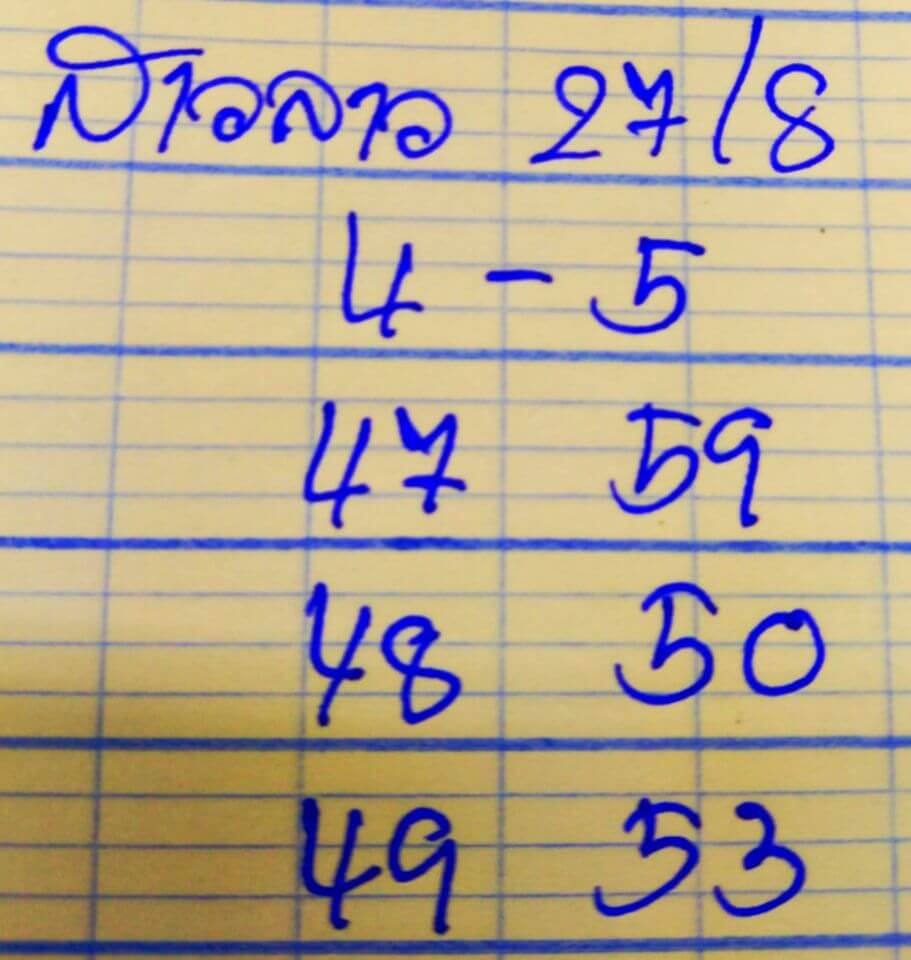 สาวลาว 27/8
4 - 5
47 59
48 50
49 53